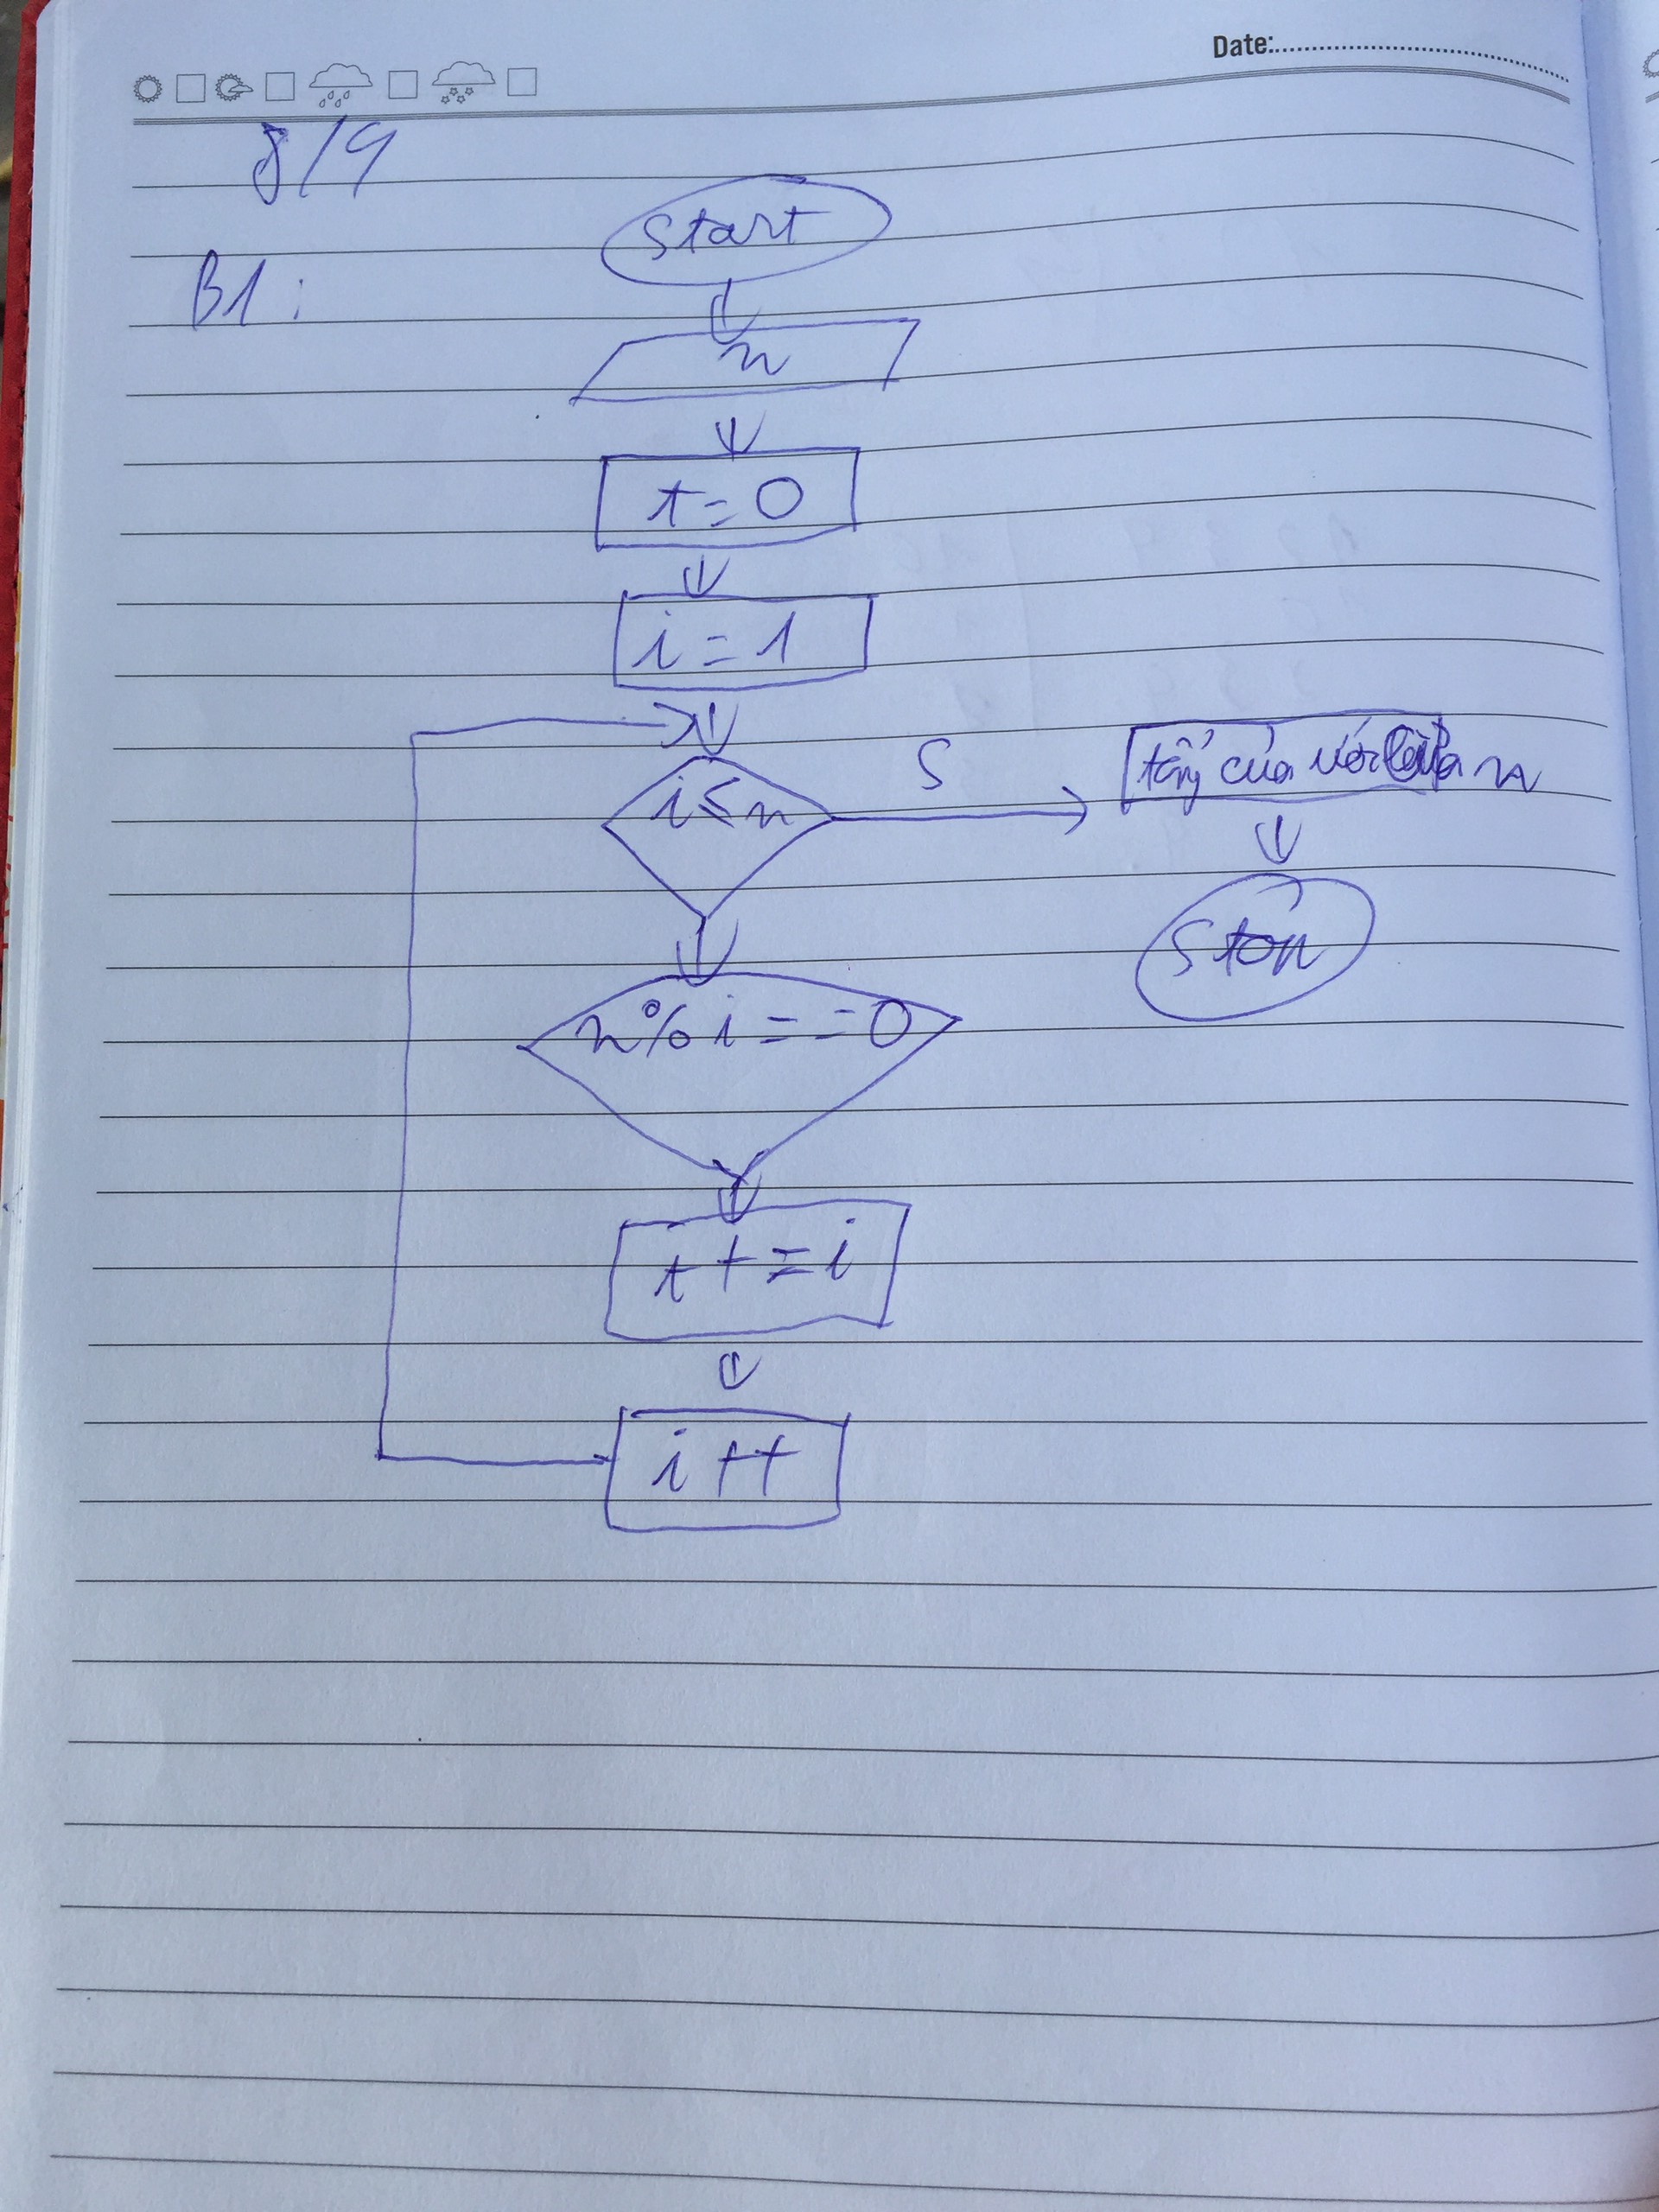 Date:
8/9
Start
B1:
n
t=0
i=1
i≤n
S
tổng của ước của n
Stop
n%i==0
t+=i
i++